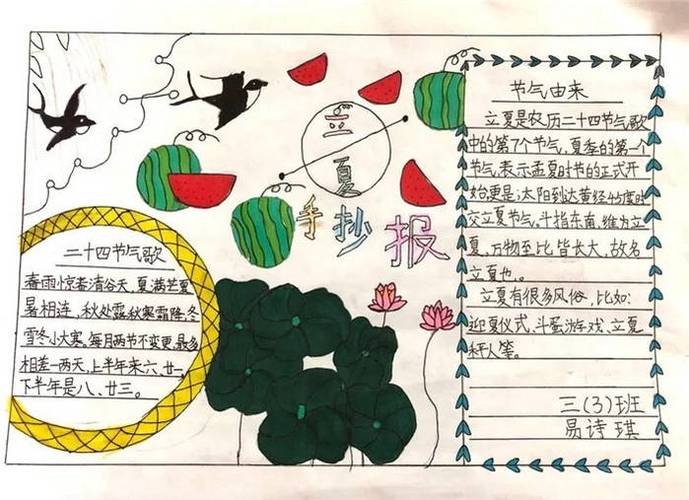 立夏
手抄报
二十四节气歌
春雨惊春清谷天、夏满芒夏
暑相连，秋处露秋寒霜降、冬
雪冬小大寒。每月两节不变更、最多
相差一两天，上半年来六、廿一
下半年是八、廿三。
节气由来
立夏是农历二十四节气歌
中的第7个节气，夏季的第一个
节气，表示孟夏时节的正式开
始更是：太阳到达黄经45度时
交立夏节气。斗指东南、维为立
夏，万物至比，皆长大，故名
立夏也。
立夏有很多风俗，比如：
迎夏仪式、斗蛋游戏、立夏
秤人等。
三（3）班
易诗琪